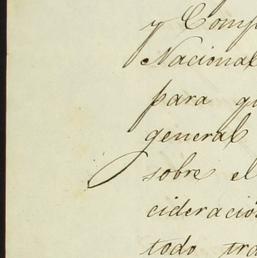 y Comp
Nacional
para qu
general
sobre el
cideración
todo tra